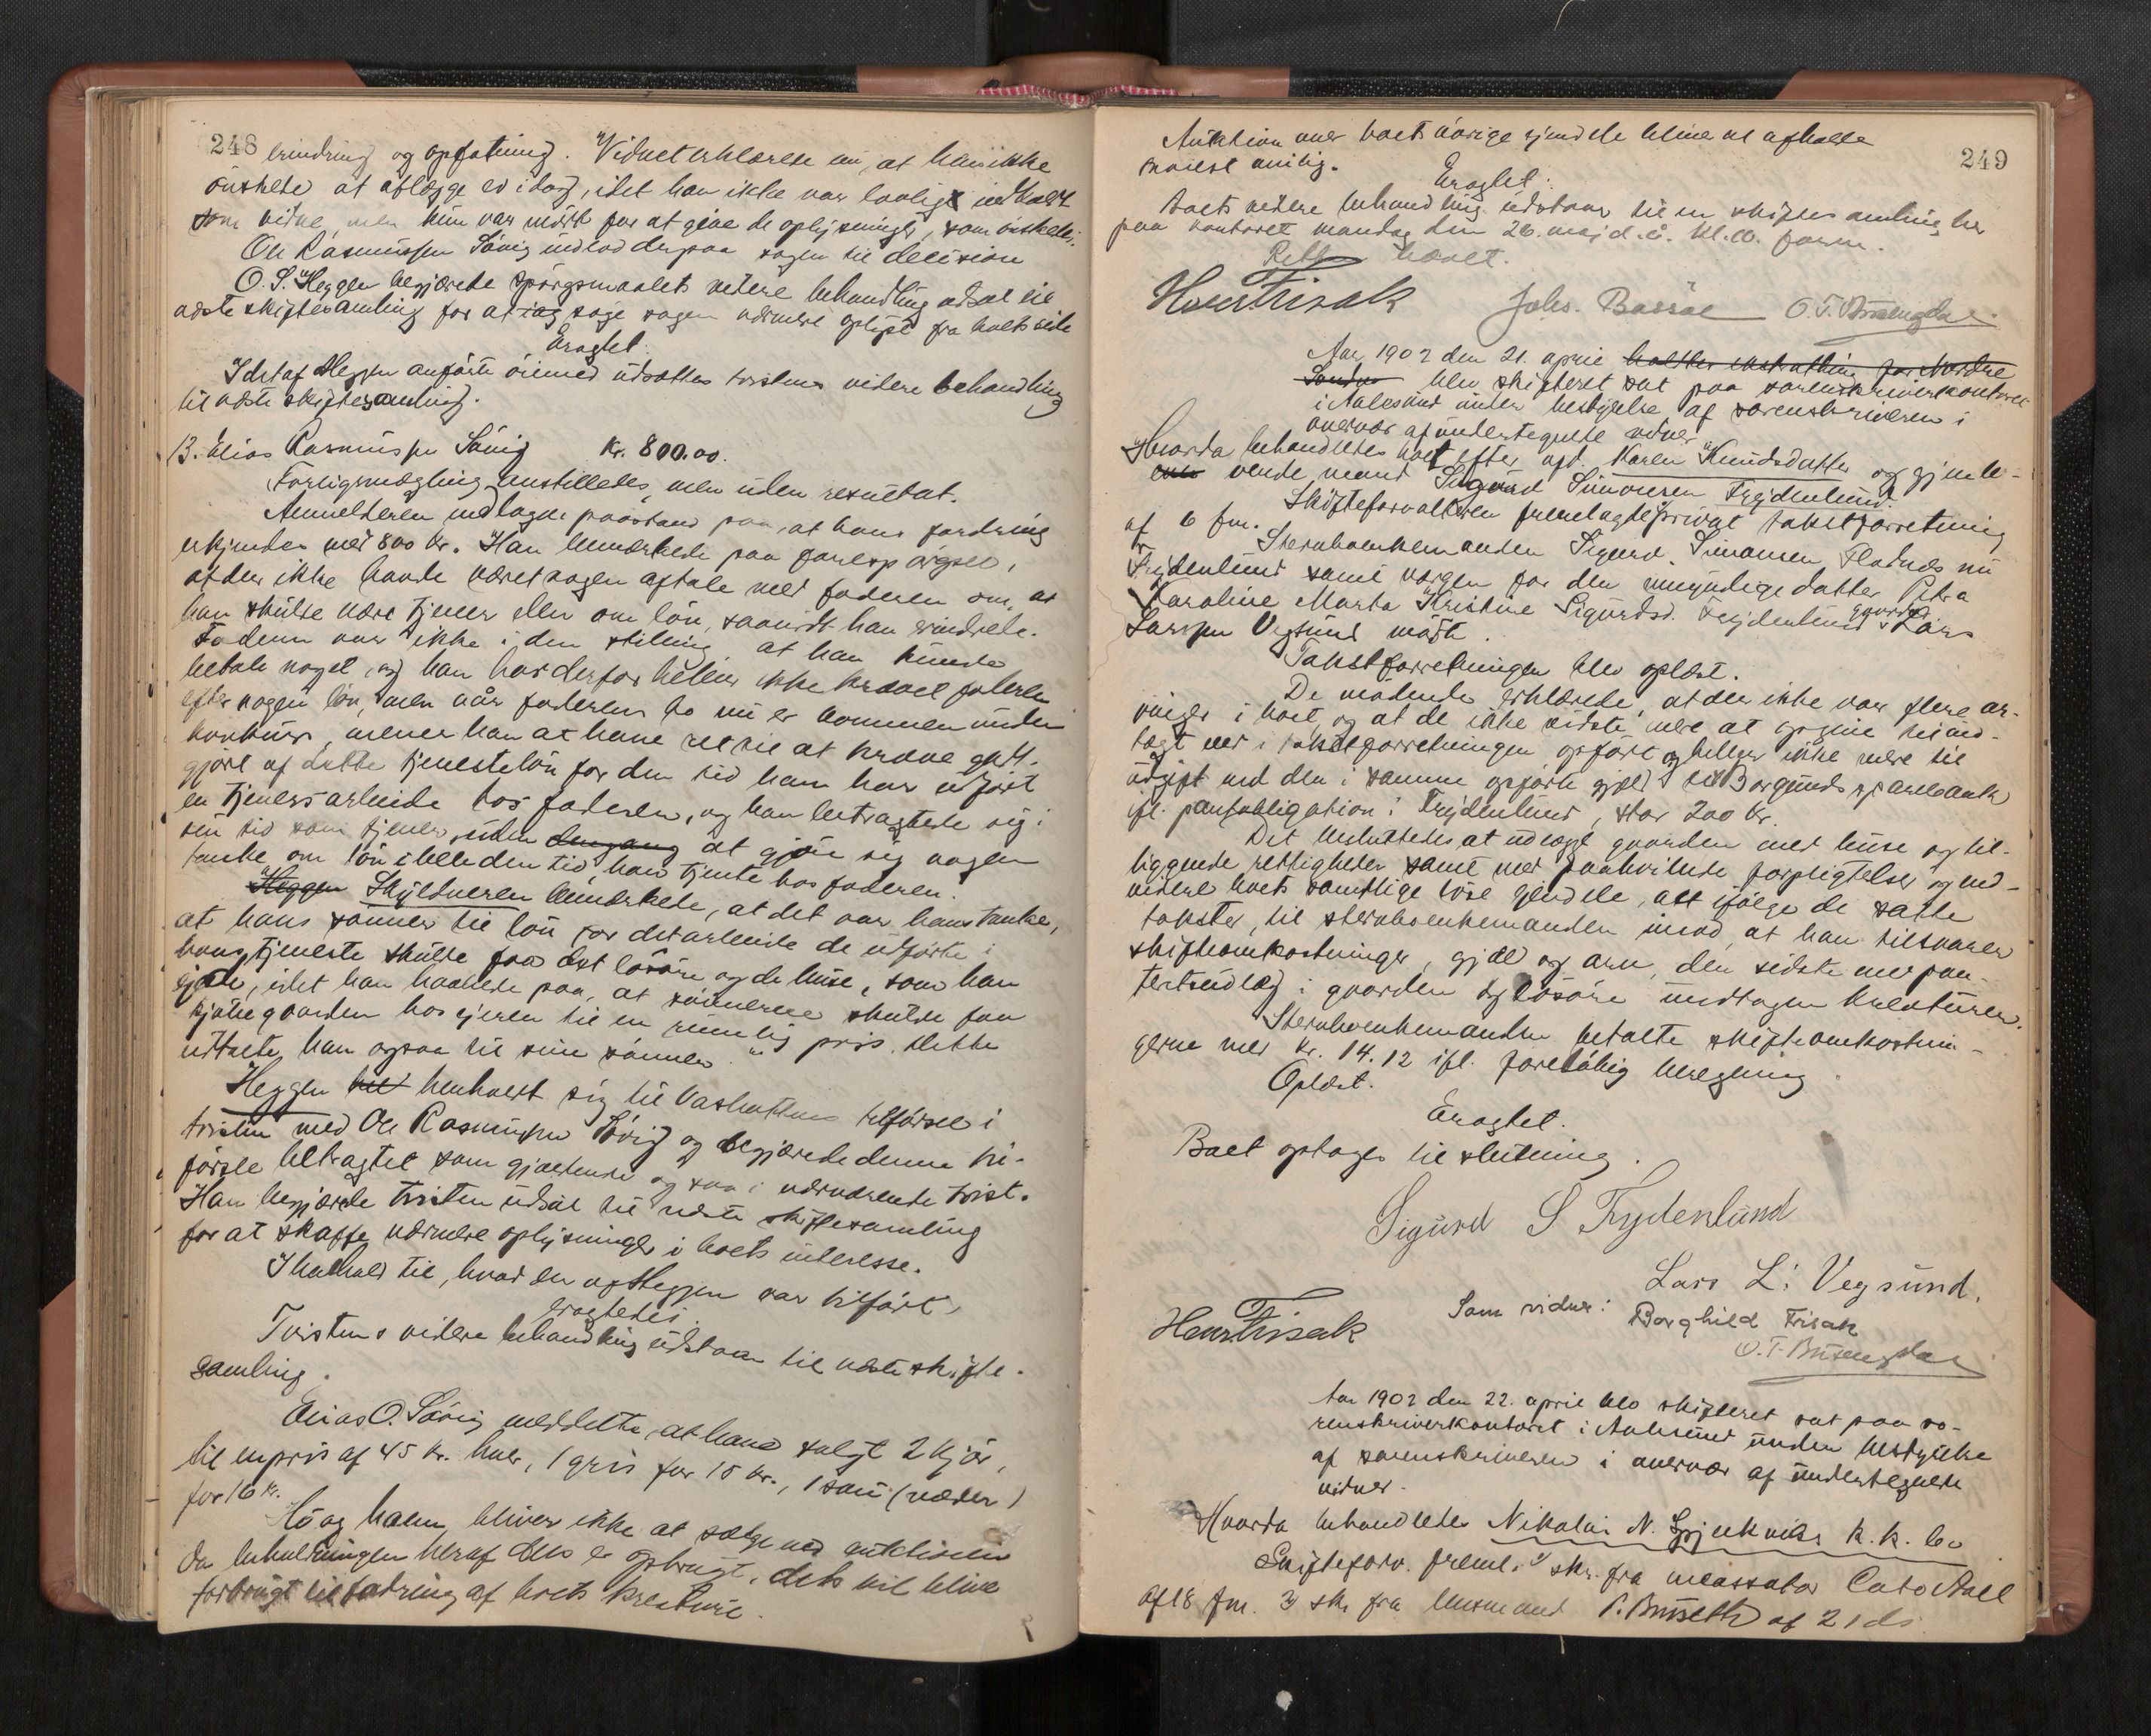 248
erindring og opfatning. Vidnet erklærede nu, at han ikke
ønskede at aflægge ed idag, idet han ikke var lovligt indkaldt
som vidne, men kun var mødt for at give de oplysninger, som ønskedes.
Ole Rasmussen Søvig indlod derpaa sagen til decision
O. S. Heggen begjærede spørgsmaalets videre behandling udsat til
næste skiftesamling for at søge sagen nærmere oplyst fra boets side
Eragtet:
I det af Heggen anførte øiemed udsættes tvistens videre behandling
til næste skiftesamling.
13. Elias Rasmussen Søvig Kr. 800.00.
Forligsmægling anstilledes, men uden resultat.
Anmelderen nedlagde paastand paa, at hans fordring
erkjendes med 800 kr. Han bemærkede paa forespørgsel,
at der ikke havde været nogen aftale med faderen om, at
han skulde være tjener eller om løn, saavidt han erindrede.
Faderen var ikke i den stilling, at han kunde
betale noget, og han har derfor heller ikke krævet faderen
efter nogen løn, men når faderens bo nu er kommen under
konkurs, mener han at have ret til at kræve godt-
gjort af dette tjenesteløn for den tid han har udført
en tjeners arbeide hos faderen, og han betragtede sig i
sin tid som tjener, uden dengang at gjøre sig nogen
tanke om løn i hele den tid, han tjente hos faderen.
Heggen Skyldneren bemærkede, at det var hans tanke,
at hans sønner til løn for det arbeide de udførte i
hans tjeneste skulde faa det løsøre og de huse, som han
eiede, idet han haabede paa, at sønnerne skulde faa
kjøbe gaarden hos eieren til en rimelig pris. Dette
udtalte han ogsaa til sine sønner.
Heggen henholdt sig til Vasbottens tilførsel i
tvisten med Ole Rasmussen Søvig og begjærede denne til-
førsle betragtet som gjældende ogsaa i nærværende tvist.
Han begjærede tvisten udsat til næste skiftesamling
for at skaffe nærmere oplysninger i boets interesse.
I henhold til, hvad der af Heggen var tilført,
eragtedes:
Tvistens videre behandling udstaar til næste skifte-
samling.
Elias O. Søvig meddelte, at have solgt 2 kjør,
til en pris af 45 kr. hver, 1 gris for 15 kr., 1 sau (væder)
for 16 kr.
Hø og halm bliver ikke at sælge ved auktionen
da beholdningen heraf dels er opbrugt, dels vil blive
forbrugt til fodring af boets kreature.
249
Auktion over boets øvrige eiendele bliver at afholde
snarest mulig.
Eragtet:
Boets videre behandling udstaar til en skiftesamling her
paa kontoret mandag den 26. maj d. å. kl. 10. form.
Retten hævet.
Henr Frisak Johs. Bassøe O. T. Busengdal
Aar 1902 den 21. april holdtes ekstrathing for Nordre
Søndre blev skifteret sat paa sorenskriverkontoret
i Aalesund under bestyrelse af sorenskriveren i
overvær af undertegnede vidner
Hvorda behandledes boet efter afd. Karen Knudsdatter og gjenle-
vende mand Sigurd Simonsen Frydenlund.
Skifteforvalteren fremlagde privat takstforretning
af 6 fm.
Sterboenkemanden Sigurd Simonsen Flatnæs nu
Frydenlund samt værgen for den umyndige datter Petra
Karoline Marta Kristine Sigurdsd. Frydenlund gaardbr. Lars
Larssen Vegsund mødte.
Takstforretningen blev oplæst.
De mødende erklærede, at der ikke var flere ar-
vinger i boet, og at de ikke vidste mere at opgive til ind-
tægt end i takstforretningen opført og heller ikke mere til
udgift end den i samme opførte gjæld til Borgunds sparebank
ifl. pantobligation i Frydenlund, stor 200 kr.
Det besluttedes at udlægge gaarden med huse og til-
liggende rettigheder samt med paahvilende forpligtelser og end-
videre boets samtlige løse eiendele, alt ifølge de satte
takster, til sterboenkemanden imod, at han tilsvarer
skifteomkostninger, gjæld og arv, den sidste mod pan-
tertsudlæg i gaarden og løsøre undtagen kreaturer.
Sterboenkemanden betalte skifteomkostnin-
gerne med kr. 14.12 ifl. foreløbig beregning.
Oplæst.
Eragtet.
Boet optages til slutning.
Sigurd S Frydenlund
Lars L. Vegsund.
Henr Frisak Som vidner: Borghild Frisak
O. T. Busengdal
Aar 1902 den 22. april blev skifteret sat paa so-
renskriverkontoret i Aalesund under bestyrelse
af sorenskriveren i overvær af undertegnede
vidner.
Hvorda behandledes Nikolai N. Gjerkviks k.k. bo
Skifteforv. freml. skr. fra incassator Cato Aall
af 18 fm. 3 skr fra lensmand P. Buseth af 21 ds.